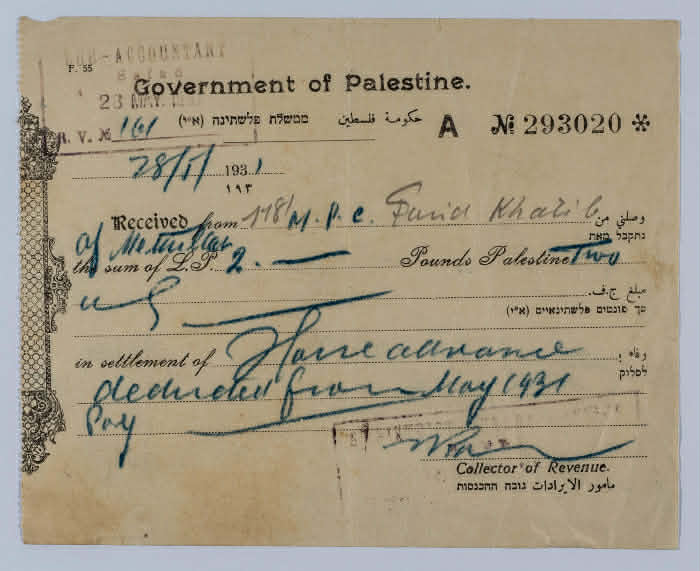 SUB-ACCOUNTANT
Safad
F. 55
Government of Palestine.
28 MAY 193
R. V. № 161
ממשלת פלשתינה (א"י) حكومة فلسطين
A № 293020 ✻
28/5/ 1931
١٩٣
Received from 1181 M.P.C. Farid Khatib وصلني من
of Metullah נתקבל מאת
the sum of L.P. 2. — Pounds Palestine Two
مبلغ ج.ف.
סך פונטים פלשתינאיים (א"י)
in settlement of Horse advance وفاء
לסלוק
deducted from May 1931
Pay
Collector of Revenue.
مأمور الايرادات גובה ההכנסות